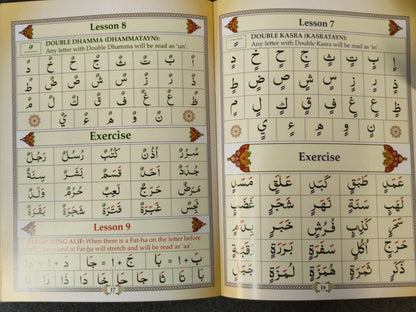 Lesson 7
DOUBLE KASRA (KASRATAYN):
Any letter with Double Kasra will be read as 'in'.
اٍ بٍ تٍ ثٍ جٍ حٍ خٍ دٍ
ذٍ رٍ زٍ سٍ شٍ صٍ ضٍ طٍ
ظٍ عٍ غٍ فٍ قٍ كٍ لٍ مٍ
نٍ وٍ هٍ ءٍ يٍ
Exercise
عَمَدٍ طَبَقٍ كَبَدٍ عَلَقٍ مَسَدٍ
نَهَرٍ شَجَرٍ لَهَبٍ
كَذِبٍ فُرُشٍ
حَرَجٍ اُكُلٍ سَفَرَةٍ بَرَرَةٍ
ذَكَرٍ هُمَزَةٍ لُمَزَةٍ
16
Lesson 8
DOUBLE DHAMMA (DHAMMATAYN):
Any letter with Double Dhamma will be read as 'un'.
اٌ بٌ تٌ ثٌ جٌ حٌ خٌ دٌ
ذٌ رٌ زٌ سٌ شٌ صٌ ضٌ طٌ
ظٌ عٌ غٌ فٌ قٌ كٌ لٌ مٌ
نٌ وٌ هٌ ءٌ يٌ
Exercise
سُرُرٌ اُذُنٌ كُتُبٌ رُسُلٌ رَجُلٌ
جُدَدٌ اَحَدٌ قَسَمٌ سِنَةٌ
مَرَضٌ حَرَجٌ لَعِبٌ وَلَدٌ
غَبَرَةٌ قَتَرَةٌ شَجَرَةٌ بَقَرَةٌ
Lesson 9
ALIF: When there is a Fat-ha on the letter before
sound of Fat-ha will stretch and will be read as 'aa'.
بَ + ا = بَا جَ + ا = جَا دَ + ا = دَا
بَا تَا ثَا جَا حَا خَا دَا ذَا
17